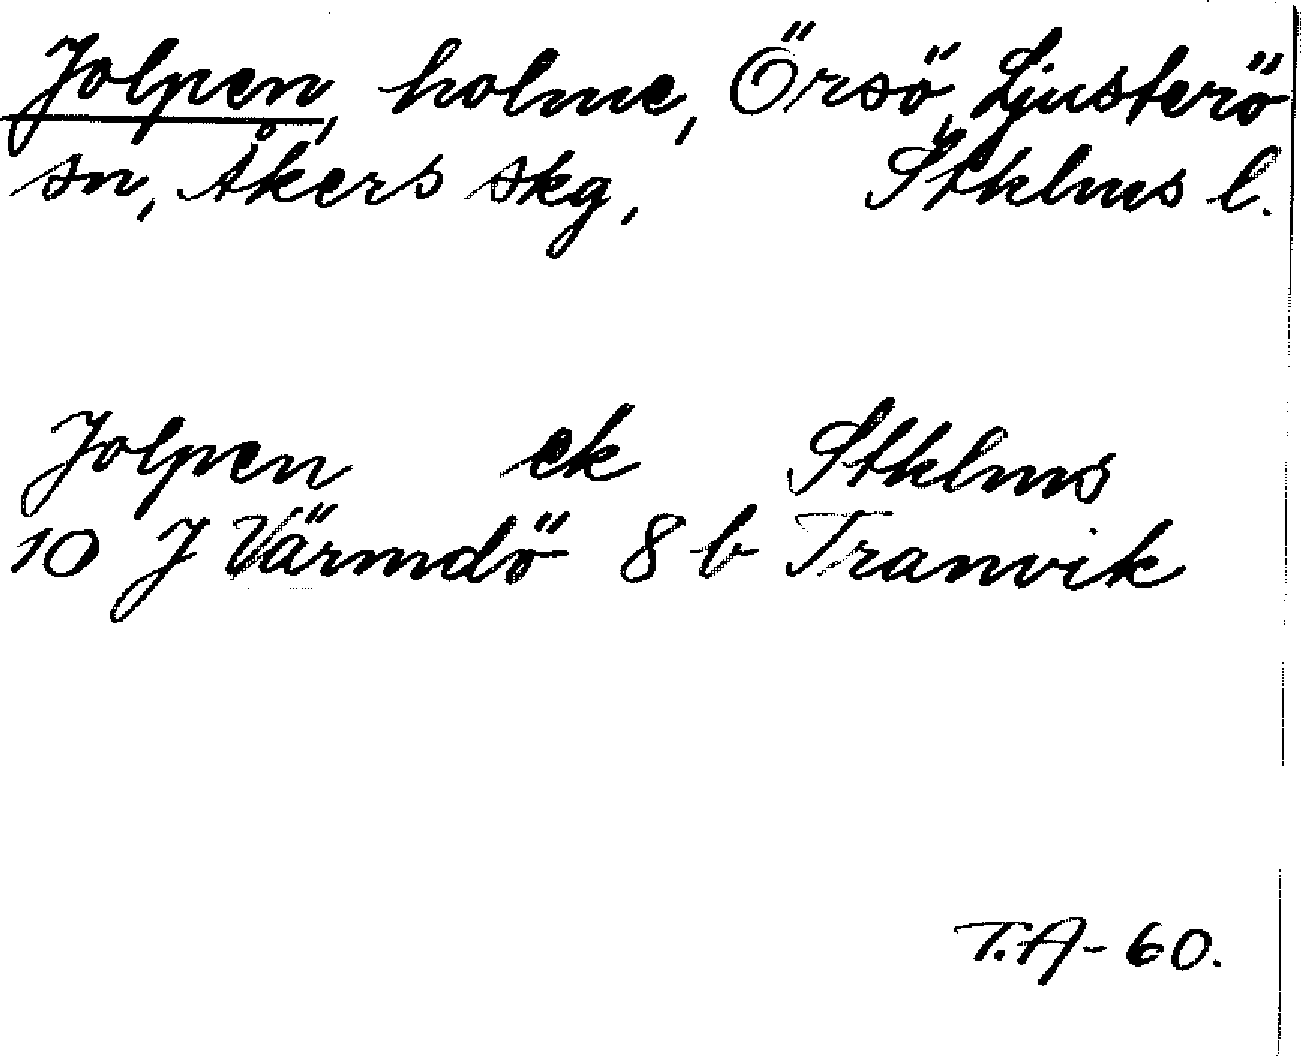 Jolpen, holme, Örsö, Ljusterö
sn, Åkers skg, Stklms l.
Jolpen ek Stklms
10 J Värmdö 8 b Tranvik
T.A-60.